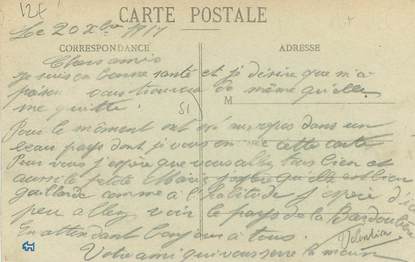 12F
CARTE POSTALE
Le 20 Xbre 1917
CORRESPONDANCE
ADRESSE
Chers amis
Je suis en bonne santé et je désire que ma
vous trouve de même qu'elle
me quitte
M
51
Pour le moment on est au repos dans un
beau pays dont je vous en cette carte
Pour vous j'espère que vous allez tous bien et
aussi la petite Marie j'espère qu'elle est bien
gaillarde comme à l'habitude J'espère d'ici
peu aller voir le pays de la
En attendant bonjour à tous.
Votre ami qui vous serre la main